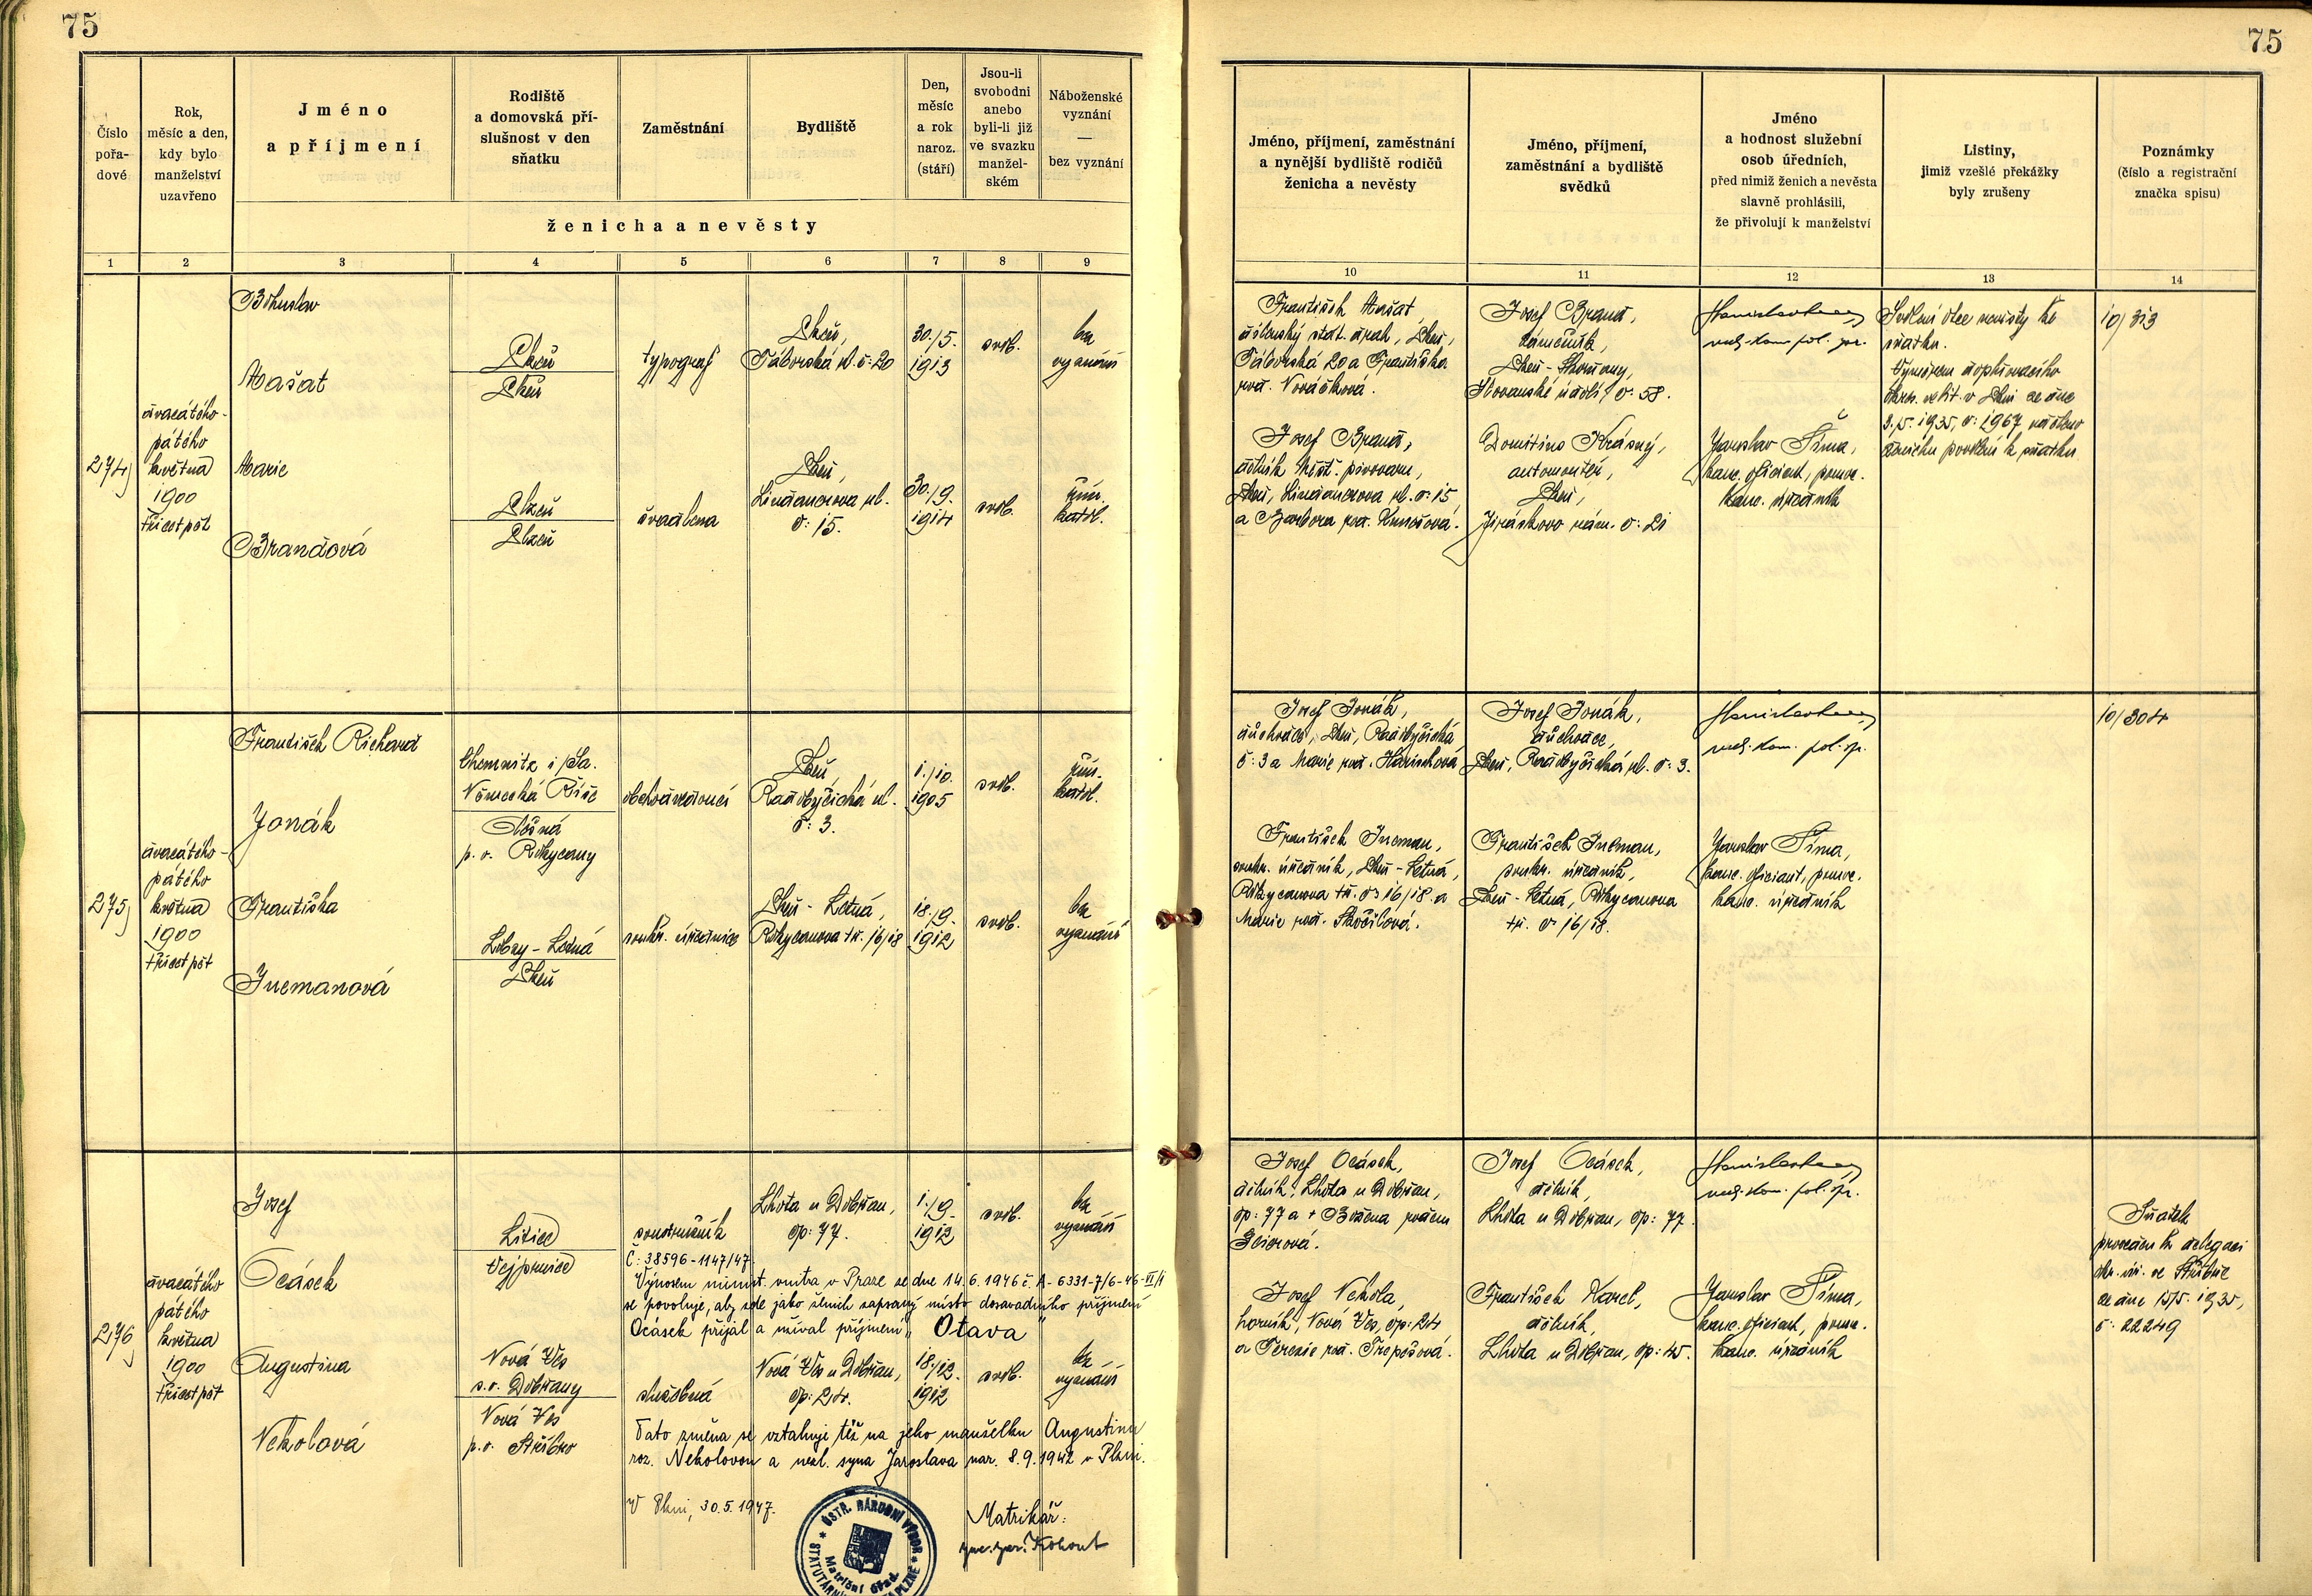 75
75
Číslo
pořa-
dové
Rok,
měsíc a den,
kdy bylo
manželství
uzavřeno
Jméno
a příjmení
Rodiště
a domovská pří-
slušnost v den
sňatku
Zaměstnání
Bydliště
Den,
měsíc
a rok
naroz.
(stáří)
Jsou-li
svobodni
anebo
byli-li již
ve svazku
manžel-
ském
Náboženské
vyznání
—
bez vyznání
ženicha a nevěsty
Jméno, příjmení, zaměstnání
a nynější bydliště rodičů
ženicha a nevěsty
Jméno, příjmení,
zaměstnání a bydliště
svědků
Jméno
a hodnost služební
osob úředních,
před nimiž ženich a nevěsta
slavně prohlásili,
že přivolují k manželství
Listiny,
jimiž vzešlé překážky
byly zrušeny
Poznámky
(číslo a registrační
značka spisu)
1 2 3 4 5 6 7 8 9
10 11 12 13 14
274
dvacátého-
pátého
května
1900
třicet pět
Bohuslav
Mašat
Plzeň
Plzeň
typograf
Plzeň,
Táborská ul. č: 20
30./5.
1913
svob.
bez
vyznání
Marie
Brandová
Plzeň
Plzeň
švadlena
Plzeň,
Lindauerova ul.
č: 15.
30./9.
1914
svob.
řím.
katol.
František Mašat,
dílenský stat. drah, Plzeň,
Táborská 20 a Františka
roz. Nováčková.
Josef Brand,
dělník Měšť. pivovaru,
Plzeň, Lindauerova ul. č: 15
a Barbora roz. Kunešová.
Josef Brand,
zámečník,
Plzeň - Skvrňany,
Slovanské údolí č: 58.
Domitius Krásný,
automontér,
Plzeň,
Jiráskovo nám. č: 21
Jaroslav Šíma,
kanc. oficiant, pomoc.
kanc. úředník
Svolení otce nevěsty ke
sňatku.
Výměrem doplňovacího
okres. velit. v Plzni ze dne
3.5. 1935, č: 2967 uděleno
ženichu povolení k sňatku
10/313
275
dvacátého-
pátého
května
1900
třicet pět
František Richard
Jonák
Chemnitz i/Sa.
Německá Říše
p. o. Rokycany
obchodvedoucí
Plzeň,
Radobyčická ul.
č: 3.
1./10.
1905
svob.
řím.
katol.
Františka
Inemanová
Lobzy - Letná
Plzeň
soukr. úřednice
Plzeň - Letná,
Rokycanova tř. 16/18
18./9.
1912
svob.
bez
vyznání
Josef Jonák,
důchodce, Plzeň, Radobyčická
č: 3 a Marie roz. Hanischová
František Ineman,
soukr. úředník, Plzeň - Letná,
Rokycanova tř. č: 16/18 a
Marie roz. Skočilová.
Josef Jonák,
důchodce,
Plzeň, Radobyčická ul. č: 3.
František Ineman,
soukr. úředník,
Plzeň - Letná, Rokycanova
tř. č 16/18.
Jaroslav Šíma,
kanc. oficiant, pomoc.
kanc. úředník
10/304
276
dvacátého
pátého
května
1900
třicet pět
Josef
Ocásek
Litice
Vejprnice
soustružník
Lhota u Dobřan,
čp: 77.
1./9.
1912
svob.
bez
vyznání
Č: 38596-1147/47
Výnosem minist. vnitra v Praze ze dne 14.6.1946 č. A-6331-7/6-46-VI/1
se povoluje, aby zde jako ženich zapsaný místo dosavadního příjmení
Ocásek přijal a užíval příjmení „Otava"
Augustina
Nekolová
Nová Ves
s.o. Dobřany
Nová Ves
p.o. Stříbro
služebná
Nová Ves u Dobřan,
čp: 24.
18./12.
1912
svob.
bez
vyznání
Tato změna se vztahuje též na jeho manželku Augustinu
roz. Nekolovou a nezl. syna Jaroslava nar. 8.9.1942 v Plzni.
V Plzni, 30.5.1947.
Matrikář:
Kohout
ÚSTŘ. NÁRODNÍ VÝBOR
Matriční úřad
Josef Ocásek,
dělník, Lhota u Dobřan,
čp: 77 a + Božena rozen
Josef Nekola,
horník, Nová Ves, čp: 24
a Terezie roz. Trepešová.
Josef Ocásek,
dělník,
Lhota u Dobřan, čp: 77.
František Karel,
dělník,
Lhota u Dobřan, čp: 45.
Jaroslav Šíma,
kanc. oficiant, pomoc.
kanc. úředník
Sňatek
proveden k delegaci
okr. úř. ve Stříbře
ze dne 15/5. 1935,
č: 22249